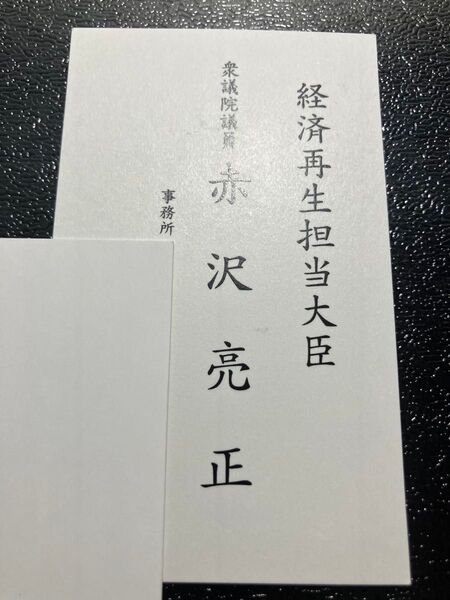 経済再生担当大臣
衆議院議員
赤沢亮正
事務所